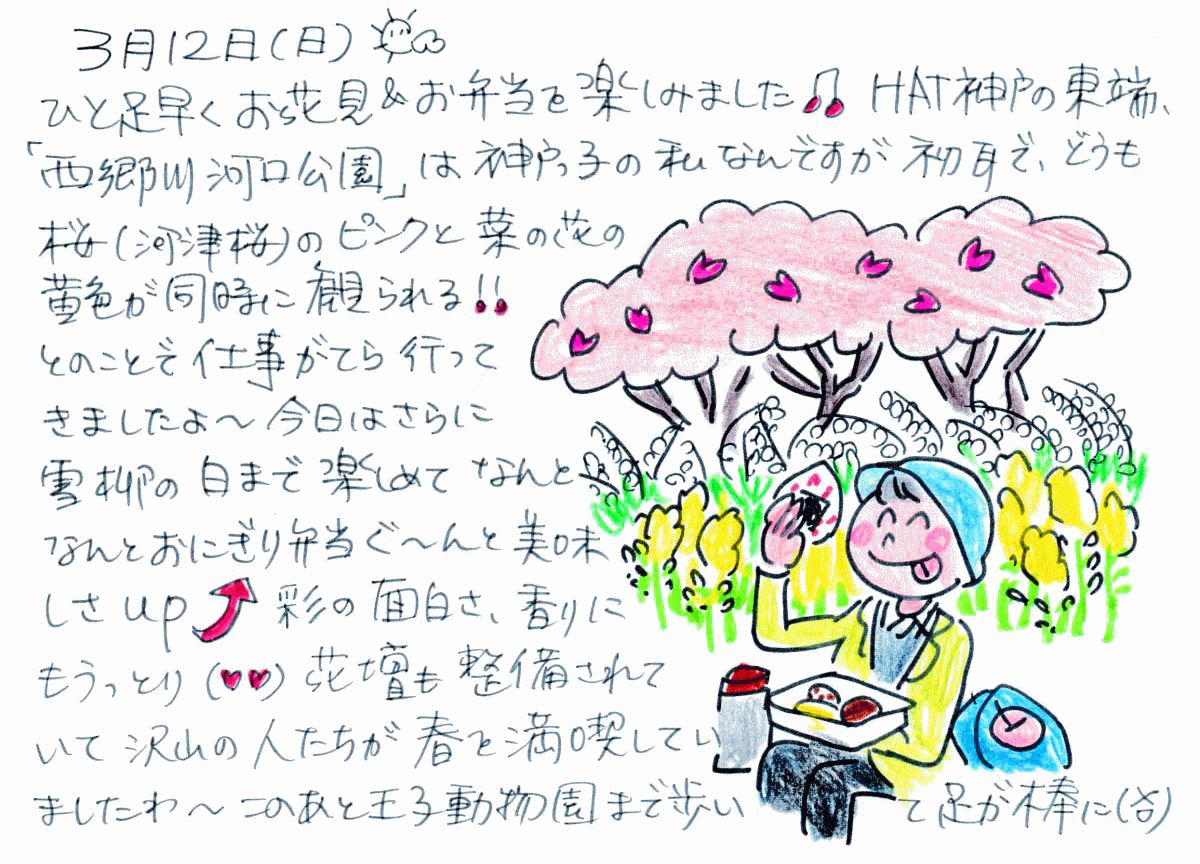 3月12日(日)
ひと足早くお花見&お弁当を楽しみました♫ HAT神戸の東端、
「西郷川河口公園」は神戸っ子の私なんですが初耳で、どうも
桜(河津桜)のピンクと菜の花の
黄色が同時に観られる!!
とのことで仕事がてら行って
きましたよ〜今日はさらに
雪柳の白まで楽しめてなんと
なんとおにぎり弁当ぐ〜んと美味
しさup 彩の面白さ、香りに
もうっとり(♥♥)花壇も整備されて
いて沢山の人たちが春を満喫してい
ましたわ〜このあと王子動物園まで歩いて足が棒に(笑)